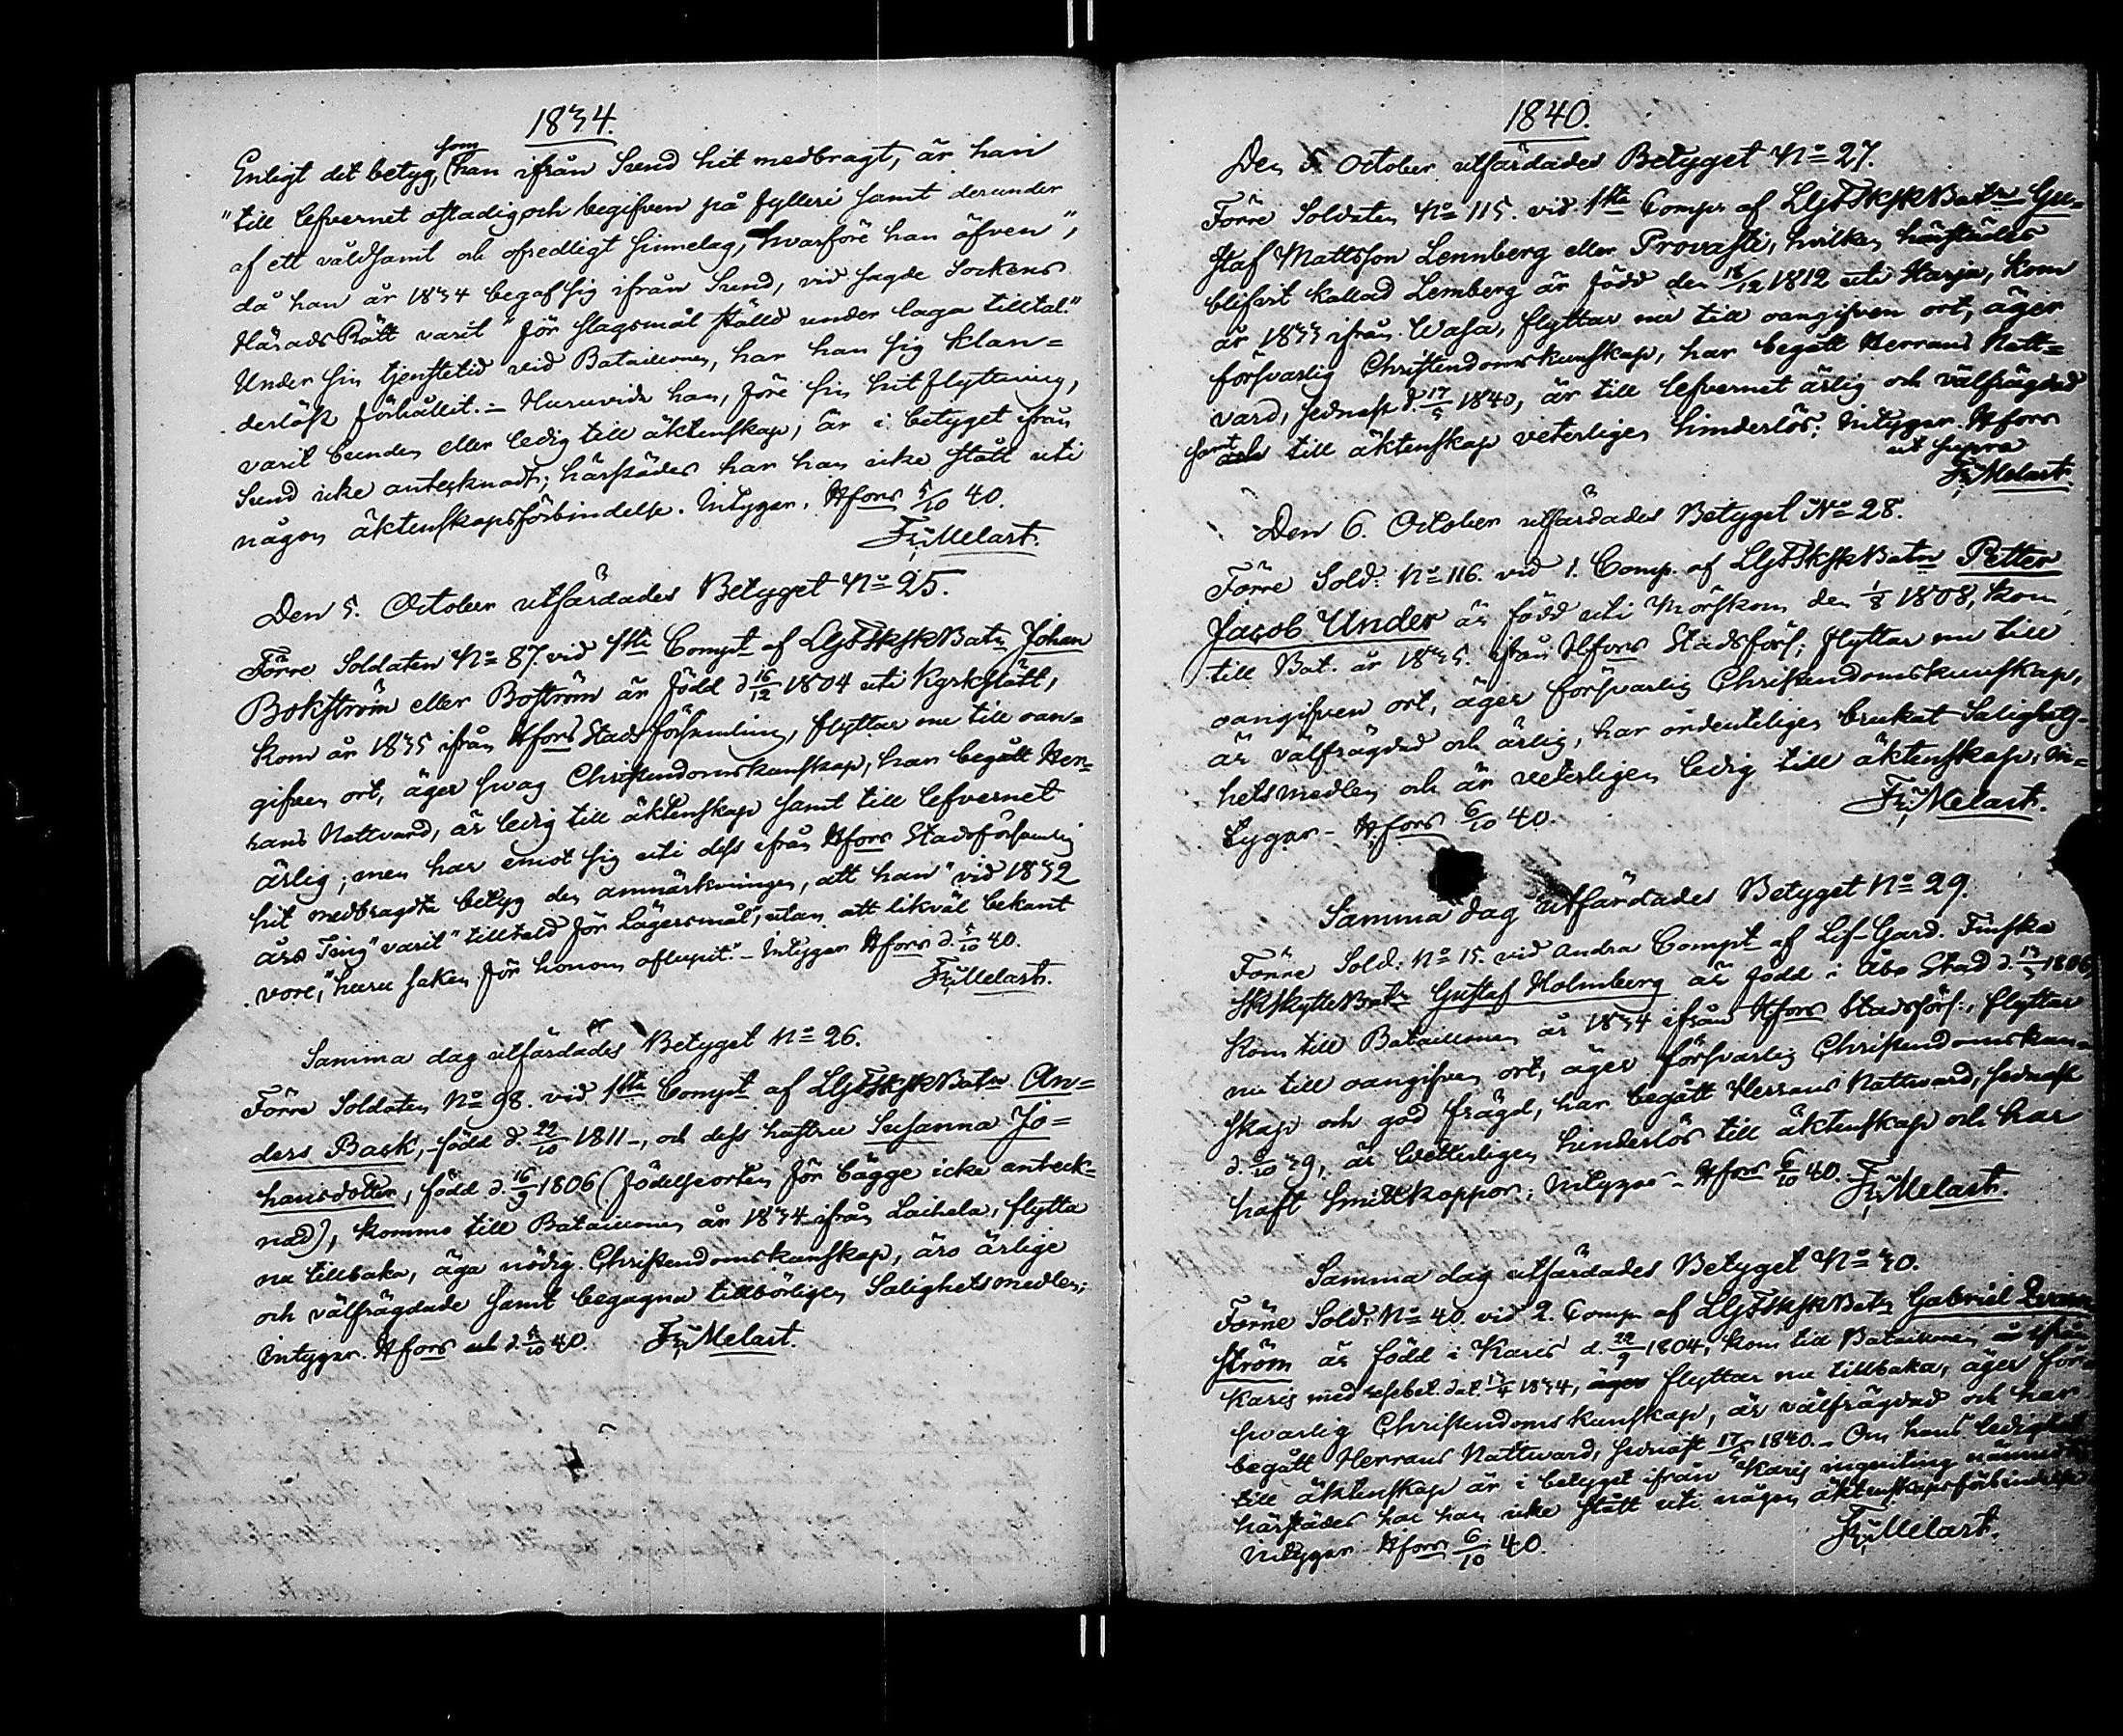 1834.
Enligt det betyg, som han ifrån Sund hit medbragt, är han
"till lefvernet ostadig och begifven på fylleri samt derunder
af ett våldsamt och ofredligt sinnelag, hvarföre han äfven",
då han år 1834 begaf sig ifrån Sund, vid sagde Sockens
HäradsRätt varit "för slagsmål ställd under laga tilltal."
Under sin tjenstetid vid Bataillonen, har han sig klan-
derlöst förhållit. - Huruvida han, före sin hitflyttning,
varit bunden eller ledig till äktenskap, är i betyget ifrån
Sund icke antecknadt; härstädes har han icke stått uti
någon äktenskapsförbindelse. Intygar. Hfors 5/10 40.
Fr: Melart.
Den 5. October utfärdades Betyget No 25.
Förre Soldaten No 87. vid 1sta Compt af LGFSkskBatn Johan
Bokström eller Boström är född d 16/12 1804 uti Kyrkslätt,
kom år 1835 ifrån Hfors Stadsförsamling, flyttar nu till oan-
gifven ort, äger svag Christendomskunskap, har begått Her-
rans Nattvard, är ledig till äktenskap samt till lefvernet
ärlig; men har emot sig uti dess ifrån Hfors Stadsförsamling
hit medbragdta betyg den anmärkningen, att han "vid 1832
års Ting" varit "tilltald för Lägersmål", utan att likväl bekant
vore, "huru saken för honom aflupit." - Intygar Hfors d. 5/10 40.
Fr: Melart.
Samma dag utfärdades Betyget No 26.
Förre Soldaten No 98. vid 1sta Compt af LGFSkskBatn An-
ders Back, - född d. 29/10 1811 -, och dess hustru Susanna Jo-
hansdotter, född d. 16/9 1806 (födelseorten för bägge icke anteck-
nad), kommo till Bataillonen år 1834 ifrån Laihela, flytta
nu tillbaka, äga nödig Christendomskunskap, äro ärlige
och välfrägdade samt begagna tillbörligen Salighetsmedlen;
Intygar. Hfors d. 5/10 40. Fr: Melart.
1840.
Den 5 October utfärdades Betyget No 27.
Förre Soldaten No 115. vid 1sta Compt af LGFSkskBatn Gu-
staf Mattsson Lennberg eller Provasti, hvilken härstädes
blifvit kallad Lemberg är född den 18/12 1812 uti Karja, kom
år 1833 ifrån Wasa, flyttar nu till oangifven ort, äger
försvarlig Christendomskunskap, har begått Herrans Natt-
vard, sednast d. 17/5 1840, är till lefvernet ärlig och välfrägdad
samt till äktenskap veterligen hinderlös; Intygar Hfors
ut supra
Fr: Melart.
Den 6. October utfärdades Betyget No 28.
Förre Sold: No 116. vid 1. Comp. af LGFSkskBatn Petter
Jacob Under är född uti Mörskom den 1/8 1808, kom
till Bat. år 1835. ifrån Hfors Stadsförs; flyttar nu till
oangifven ort, äger försvarlig Christendomskunskap,
är välfrägdad och ärlig, har ordentligen brukat Salighets-
hetsmedlen och är veterligen ledig till äktenskap; In-
tygar - Hfors 6/10 40.
Fr: Melart.
Samma dag utfärdades Betyget No 29.
Förre Sold: No 15. vid andra Compt af Lif-Gard. Finska
SkSkytteBatn Gustaf Holmberg är född i Åbo Stad d. 1806,
kom till Bataillonen år 1834 ifrån Hfors Stadsförs:, flyttar
nu till oangifven ort, äger försvarlig Christendomskun-
skap och god frägd, har begått Herrans Nattvard, sednast
d. 6/10 39, är Wetterligen hinderlös till äktenskap och har
haft Smittkoppor; Intygar - Hfors 6/10 40.
Fr: Melart.
Samma dag utfärdades Betyget No 30.
Förre Sold: No 40. vid 2. Comp. af LGFSkskBatn Gabriel
ström är född i Karis d. 29/9 1804, kom till Bataillonen ifrån
Karis med attest dat. 1834, flyttar nu tillbaka, äger för-
svarlig Christendomskunskap, är välfrägdad och har
begått Herrans Nattvard, sednast 17/5 1840. - Om hans ledighet
till äktenskap är i betyget ifrån Karis ingenting nämndt;
härstädes har han icke stått uti någon äktenskapsförbindelse
Intygar Hfors 6/10 40.
Fr: Melart.